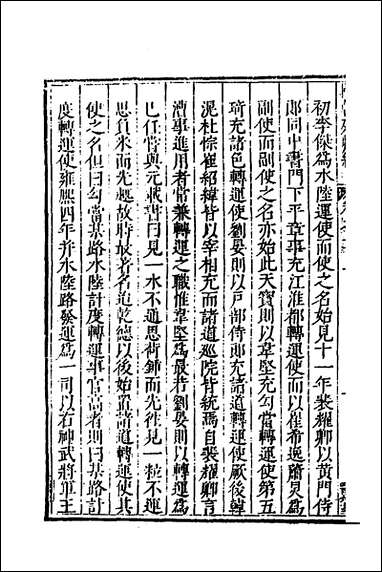 初李傑爲水陸運使而使之名始見十一年裴耀卿以黃門侍
郎同中書門下平章事充江淮都轉運使而以崔希逸蕭炅爲
副使而副使之名亦始此天寶則以韋堅充勾當轉運使第五
琦充諸色轉運使劉晏則以戶部侍郎充諸道轉運使厥後韓
滉杜悰崔紹緯皆以宰相充而諸道巡院皆統焉自裴耀卿言
漕事進用者常兼轉運之職惟韋堅爲最若劉晏則以轉運爲
已任嘗與元載書曰見一水不通思荷鍤而先往見一粒不運
思負米而先趨故時最著名迨乾德以後始置諸道轉運使其
使之名但曰勾當某路水陸計度轉運事官高者則曰某路計
度轉運使雍熙四年并水陸路發運爲一司以右神武將軍王